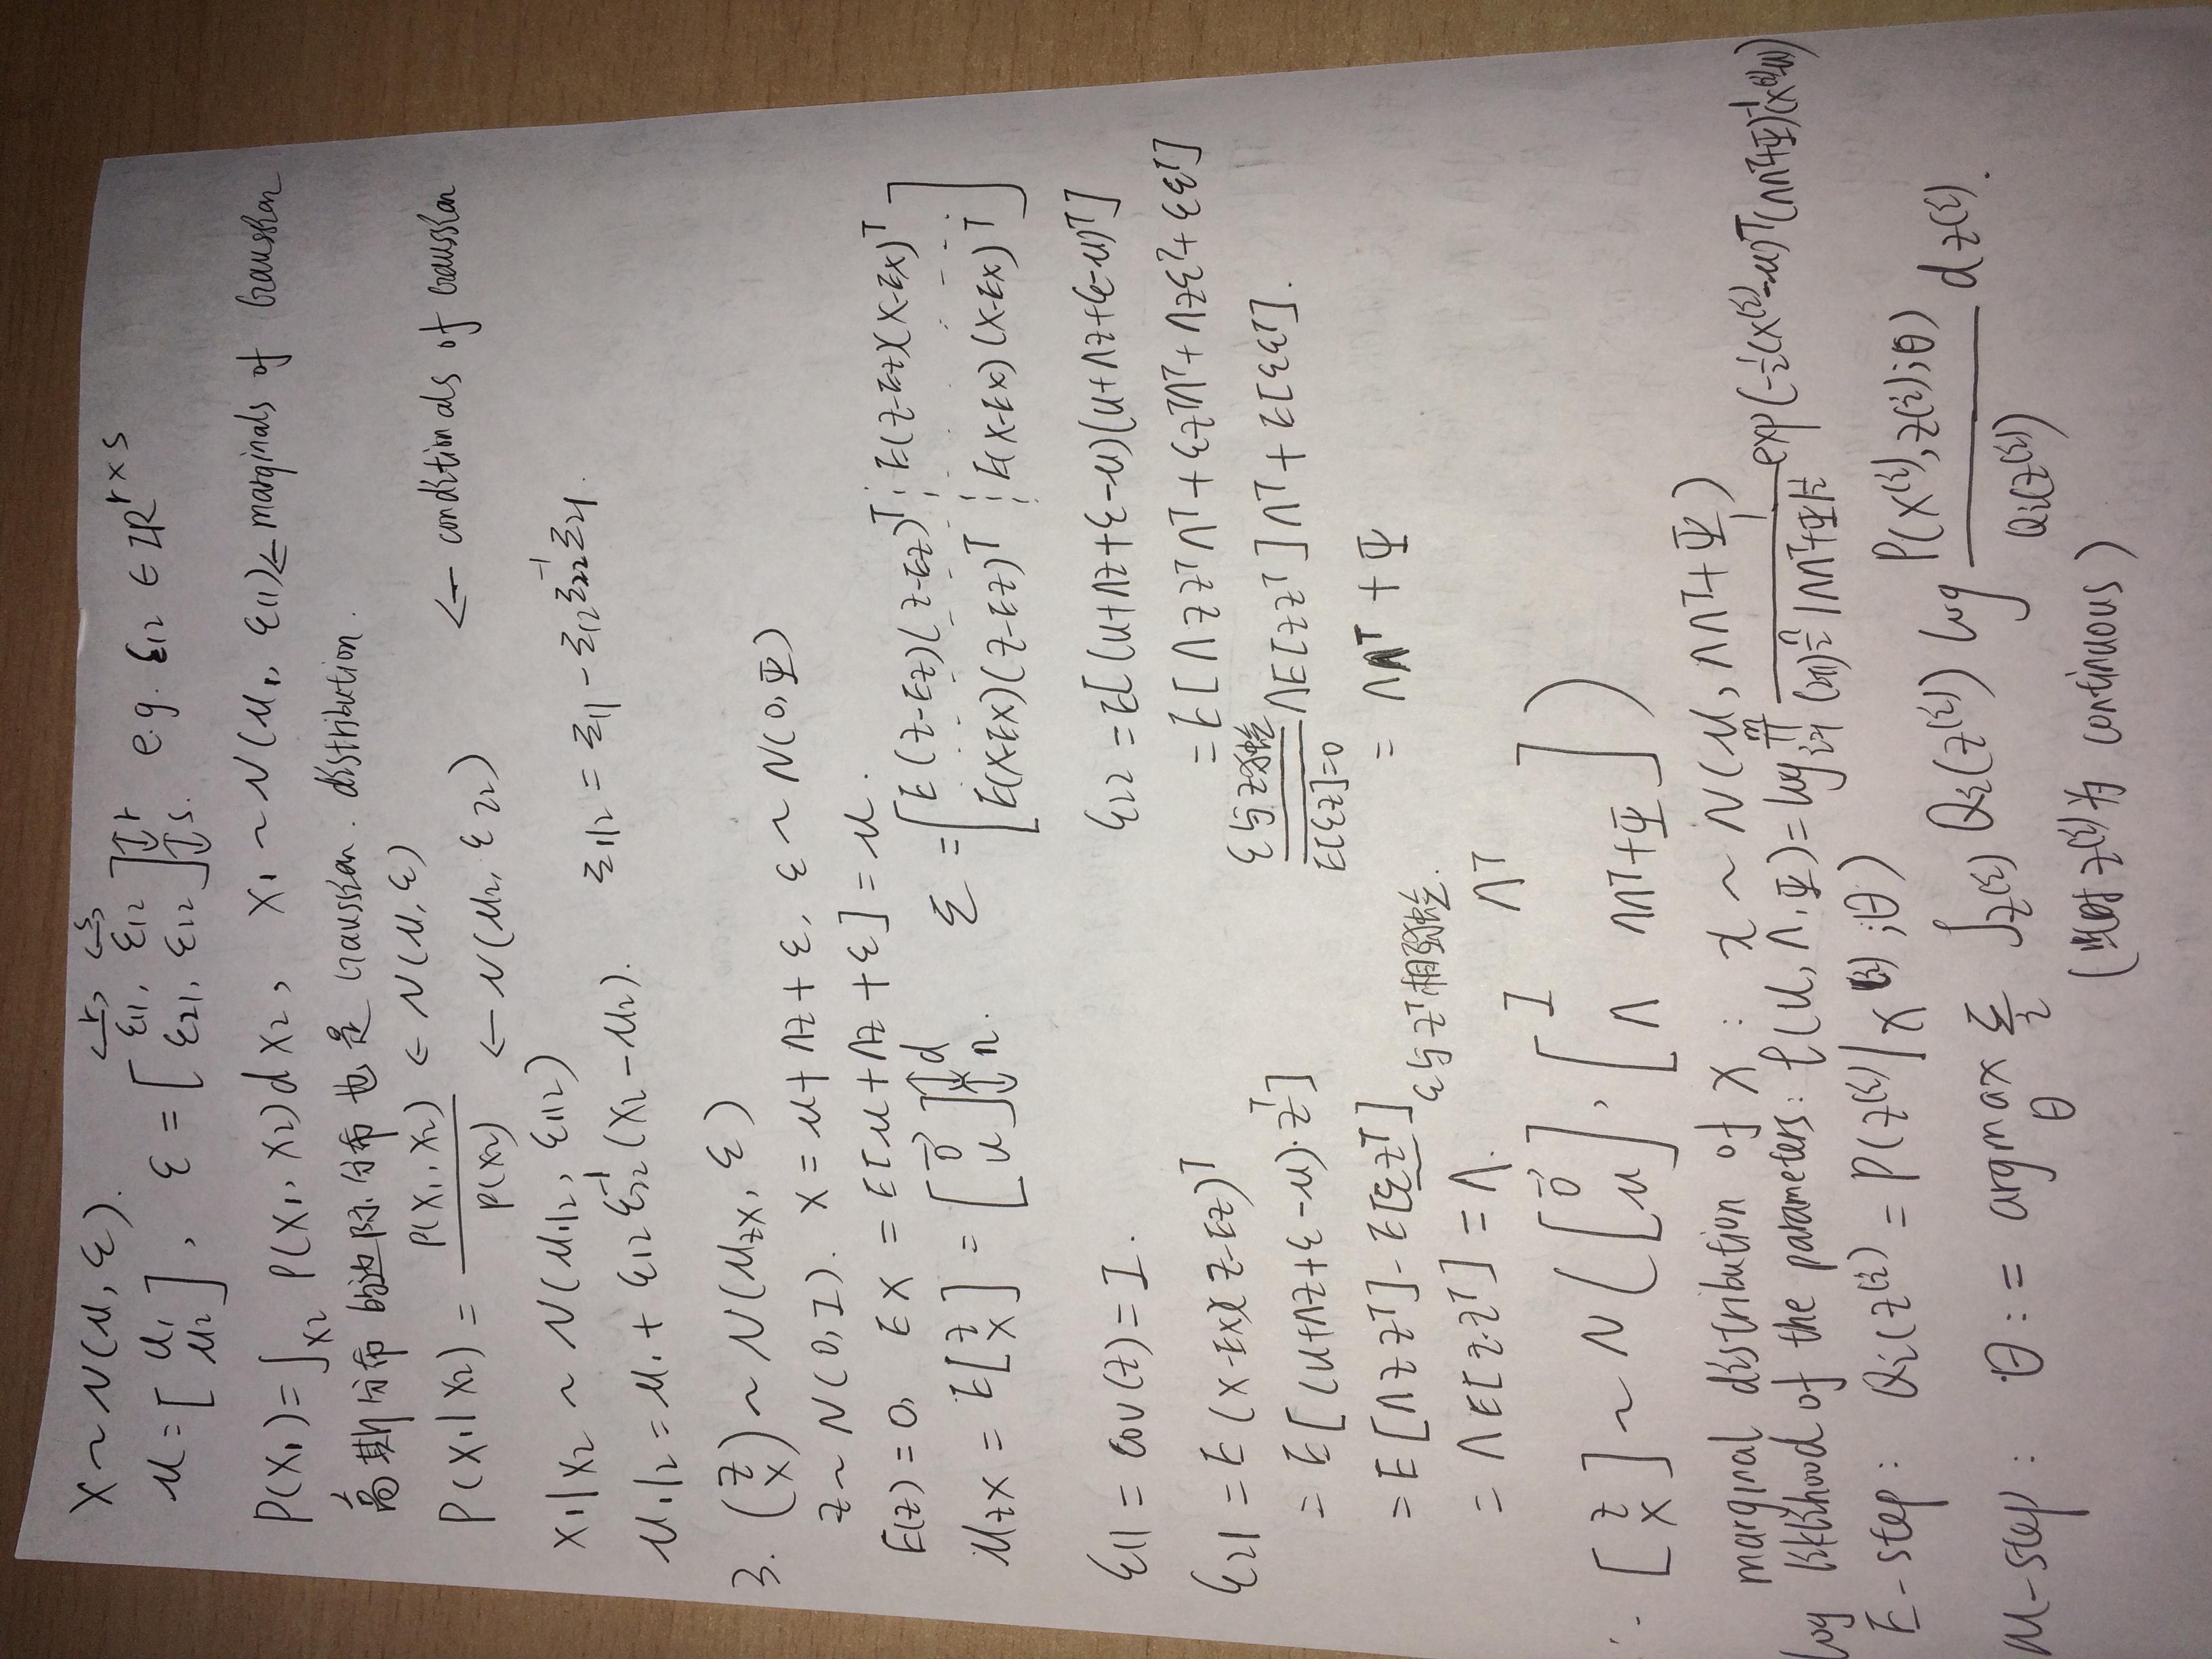 X ~ N(μ, Σ).
μ = [μ1 μ2], Σ = [Σ11, Σ12 Σ21, Σ12] ↕r ↕s. e.g. Σ12 ∈ IR^{r×s}
P(X1) = ∫_{X2} P(X1, X2) d X2, X1 ~ N(μ1, Σ11) ← marginals of Gaussian
高斯分布的边际分布也是 Gaussian. distribution.
P(X1|X2) = P(X1, X2) / P(X2) ← N(μ, Σ) ← N(μ2, Σ22) ← conditionals of Gaussian
X1|X2 ~ N(μ1|2, Σ1|2)
μ1|2 = μ1 + Σ12 Σ22^{-1} (X2 - μ2). Σ1|2 = Σ11 - Σ12 Σ22^{-1} Σ21.
3. (z x) ~ N(μzx, Σ)
z ~ N(0, I). X = μ + Λz + ε, ε ~ N(0, Ψ)
E(z) = 0, EX = E[μ + Λz + ε] = μ.
μzx = E[z x] = [0⃗ μ] ↕d ↕n. Σ = [E(z-Ez)(z-Ez)^T E(z-Ez)(X-EX)^T E(X-EX)(z-Ez)^T E(X-EX)(X-EX)^T]
Σ11 = Cov(z) = I.
Σ21 = E(X-EX)(z-Ez)^T
= E[(μ+Λz+ε-μ)·z^T]
= E[Λzz^T] - E[εz^T] ε与z^T相互独立.
= ΛE[z·z^T] = Λ.
Σ22 = E[(μ+Λz+ε-μ)(μ+Λz+ε-μ)^T]
= E[Λzz^TΛ^T + εz^TΛ^T + Λzε^T + εε^T]
ε与z独立 E[εz]=0 = ΛE[zz^T]Λ^T + E[εε^T].
= ΛΛ^T + Ψ
∴ [z x] ~ N([0⃗ μ], [I Λ^T Λ ΛΛ^T+Ψ])
marginal distribution of X : x ~ N(μ, ΛΛ^T+Ψ)
log liklihood of the parameters: ℓ(μ, Λ, Ψ) = log ∏_{i=1}^{m} 1 / ((2π)^{n/2} |ΛΛ^T+Ψ|^{1/2}) exp(-1/2 (x^{(i)}-μ)^T (ΛΛ^T+Ψ)^{-1} (x^{(i)}-μ))
E-step: Qi(z^{(i)} = P(z^{(i)}|x^{(i)};θ)
M-step: θ := argmax_θ Σ_i ∫_{z^{(i)}} Qi(z^{(i)}) log P(x^{(i)}, z^{(i)};θ) / Qi(z^{(i)}) d z^{(i)}.
(此时 z^{(i)} 为 continuous)